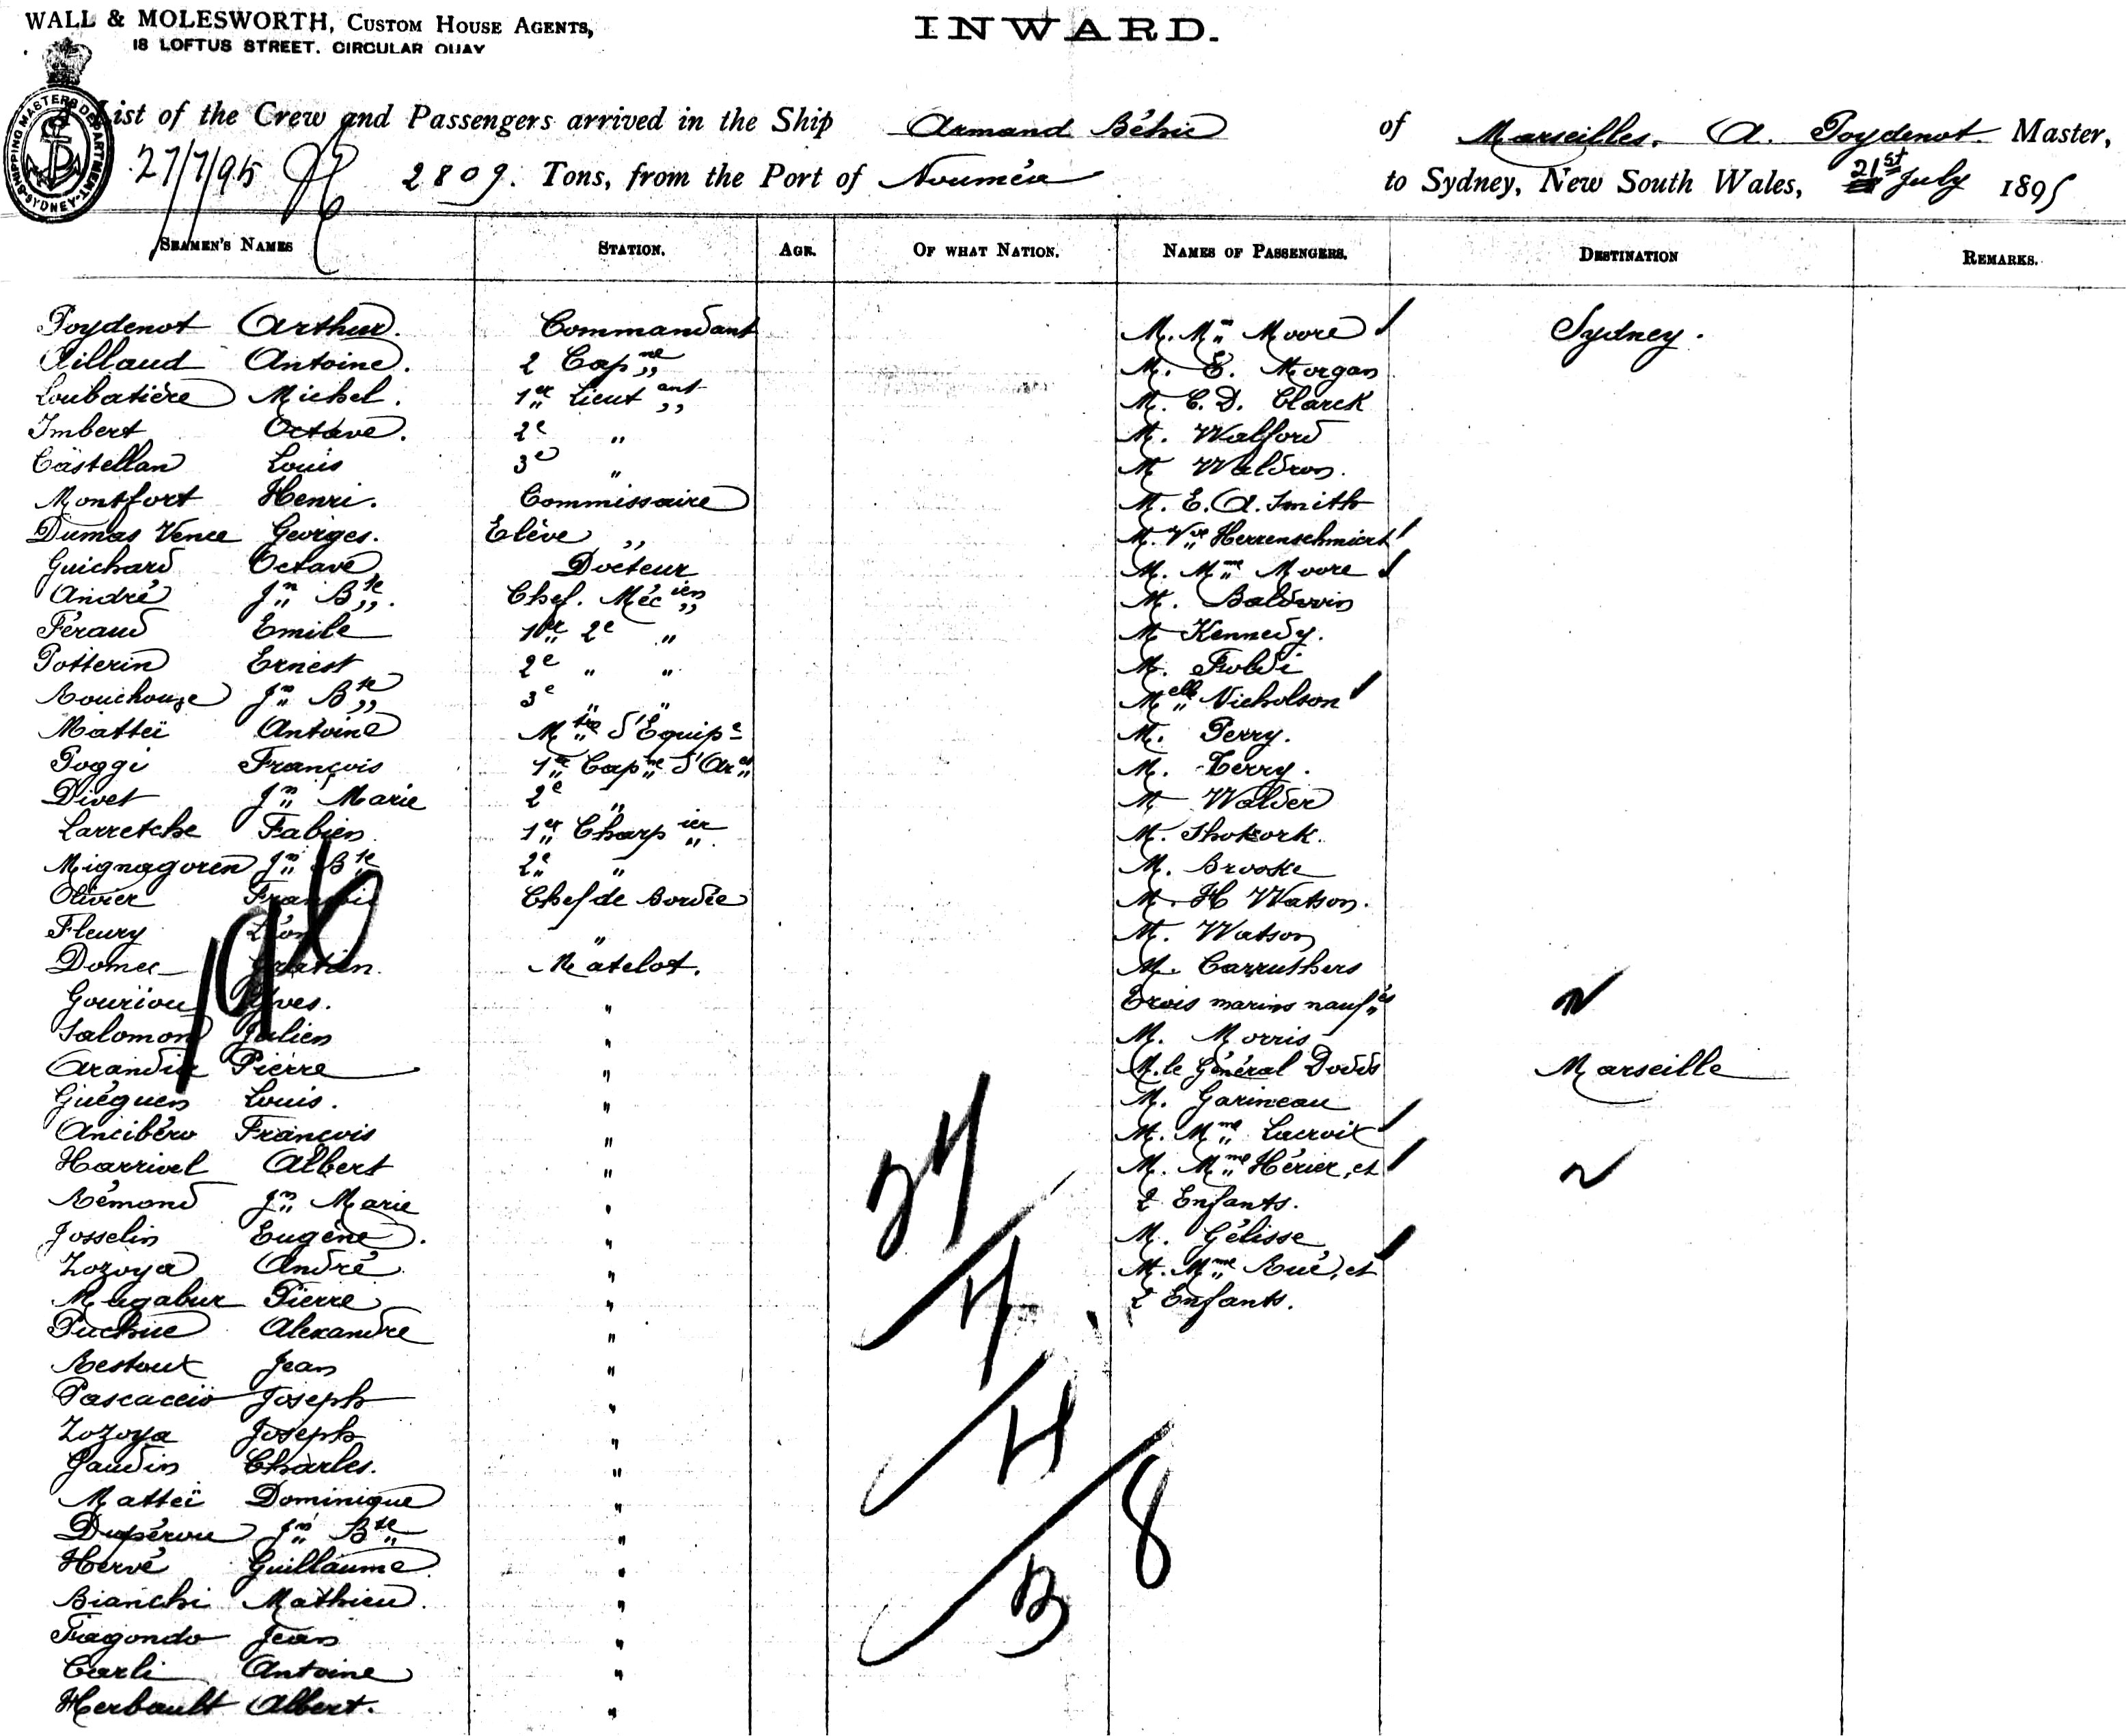 WALL & MOLESWORTH, CUSTOM HOUSE AGENTS,
18 LOFTUS STREET. CIRCULAR QUAY
INWARD.
SHIPPING MASTERS DEPARTMENT SYDNEY
List of the Crew and Passengers arrived in the Ship Armand Béhic of Marseilles. A. Poydenot Master,
27/7/95 2809. Tons, from the Port of Nouméa to Sydney, New South Wales, 21st July 1895
SEAMEN'S NAMES STATION. AGE. OF WHAT NATION. NAMES OF PASSENGERS. DESTINATION REMARKS.
Poydenot Arthur. Commandant M. Mme Moore Sydney.
Aillaud Antoine. 2 Capne M. E. Morgan
Loubatière Michel. 1er Lieutant M. C. D. Clarck
Imbert Octave. 2e " M. Walford
Castellan Louis 3e " M Waldron.
Montfort Henri. Commissaire M. E. A. Smith
Dumas Vence Georges. Elève " M. Vve Herrenschmidt
Guichard Octave Docteur M. Mme Moore
André Jn Bte. Chef. Mécien M. Baldwin
Féraud Emile 1er 2e " M Kennedy.
Potterin Ernest 2e " " M.
Rouchouze Jn Bte 3e " Melle Nicholson
Matteï Antoine Mtre d'Equipe M. Perry.
Poggi François 1er Capne d'Ar M. Terry.
Divet Jn Marie 2e " M Walder
Larretche Fabien 1er Charpier M.
Mignagoren Jn Bte 2e " M. Brooke
Olivier François Chef de Bordée M. H Watson.
Fleury Léon " M. Watson
Domec Gratien. Matelot. M. Carruthers
Gouriou Yves. " Trois marins naufés "
Salomon Julien " M. Morris
Arandia Pierre " M. le Général Dodds Marseille
Guéguen Louis. " M. Garineau
Ancibéro François " M. Mme Lacroix
Harrivel Albert " M. Mme Hérier, et "
Rémond Jn Marie " 2 Enfants.
Josselin Eugène. " M. Gélisse
Zozoya André " M. Mme Rué, et
Mugabur Pierre " 2 Enfants.
Puchue Alexandre "
Restoux Jean "
Pascaccio Joseph "
Zozoya Joseph "
Gaudin Charles. "
Matteï Dominique "
Dupérou Jn Bte "
Hervé Guillaume "
Bianchi Mathieu. "
Fagondo Jean "
Carli Antoine "
Herbault Albert. "
8